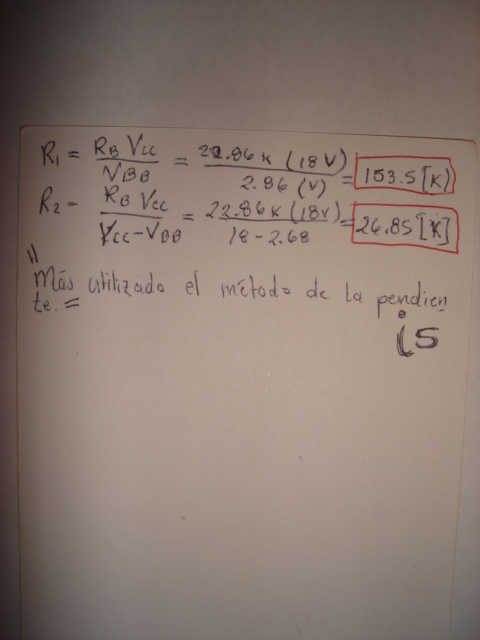 R₁ = RB Vcc / VBB = 22.86K (18V) / 2.86 (V) = 153.5 [K]
R₂ = RB Vcc / Vcc-VBB = 22.86K (18V) / 18-2.68 = 26.85 [K]
"
Más utilizado el método de la pendien
te. =